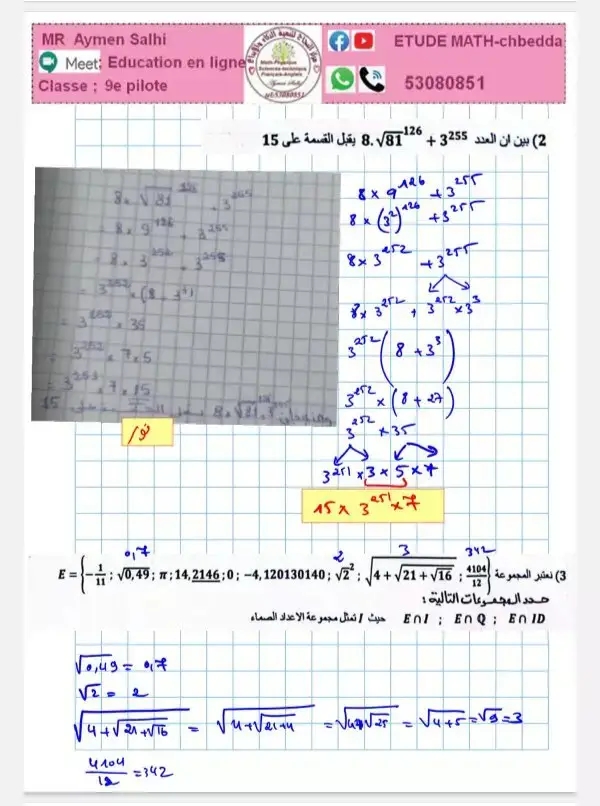 MR Aymen Salhi
Meet: Education en ligne
Classe ; 9e pilote
ETUDE MATH-chbedda
53080851
2) بين ان العدد 8.√81^126 + 3^255 يقبل القسمة على 15
8 × √81^126 + 3^255
8 × 9^126 + 3^255
= 8 × 3^252 + 3^255
= 3^252 × (8 + 3^3)
= 3^252 × 35
= 3^252 × 7 × 5
= 3^251 × 7 × 15
8 × 9^126 + 3^255
8 × (3^2)^126 + 3^255
8 × 3^252 + 3^255
8 × 3^252 + 3^252 × 3^3
3^252 (8 + 3^3)
3^252 × (8 + 27)
3^252 × 35
3^251 × 3 × 5 × 7
15 × 3^251 × 7
0,7 2 3 342
3) نعتبر المجموعة E = {-1/11 ; √0,49 ; π ; 14,2146 ; 0 ; -4,120130140 ; √2^2 ; √(4 + √(21 + √16)) ; 4104/12}
حدد المجموعات التالية :
E∩I ; E∩Q ; E∩ID حيث I تمثل مجموعة الاعداد الصماء
√0,49 = 0,7
√2 = 2
√(4+√(21+√16)) = √(4+√(21+4)) = √(4+√25) = √(4+5) = √9 = 3
4104/12 = 342